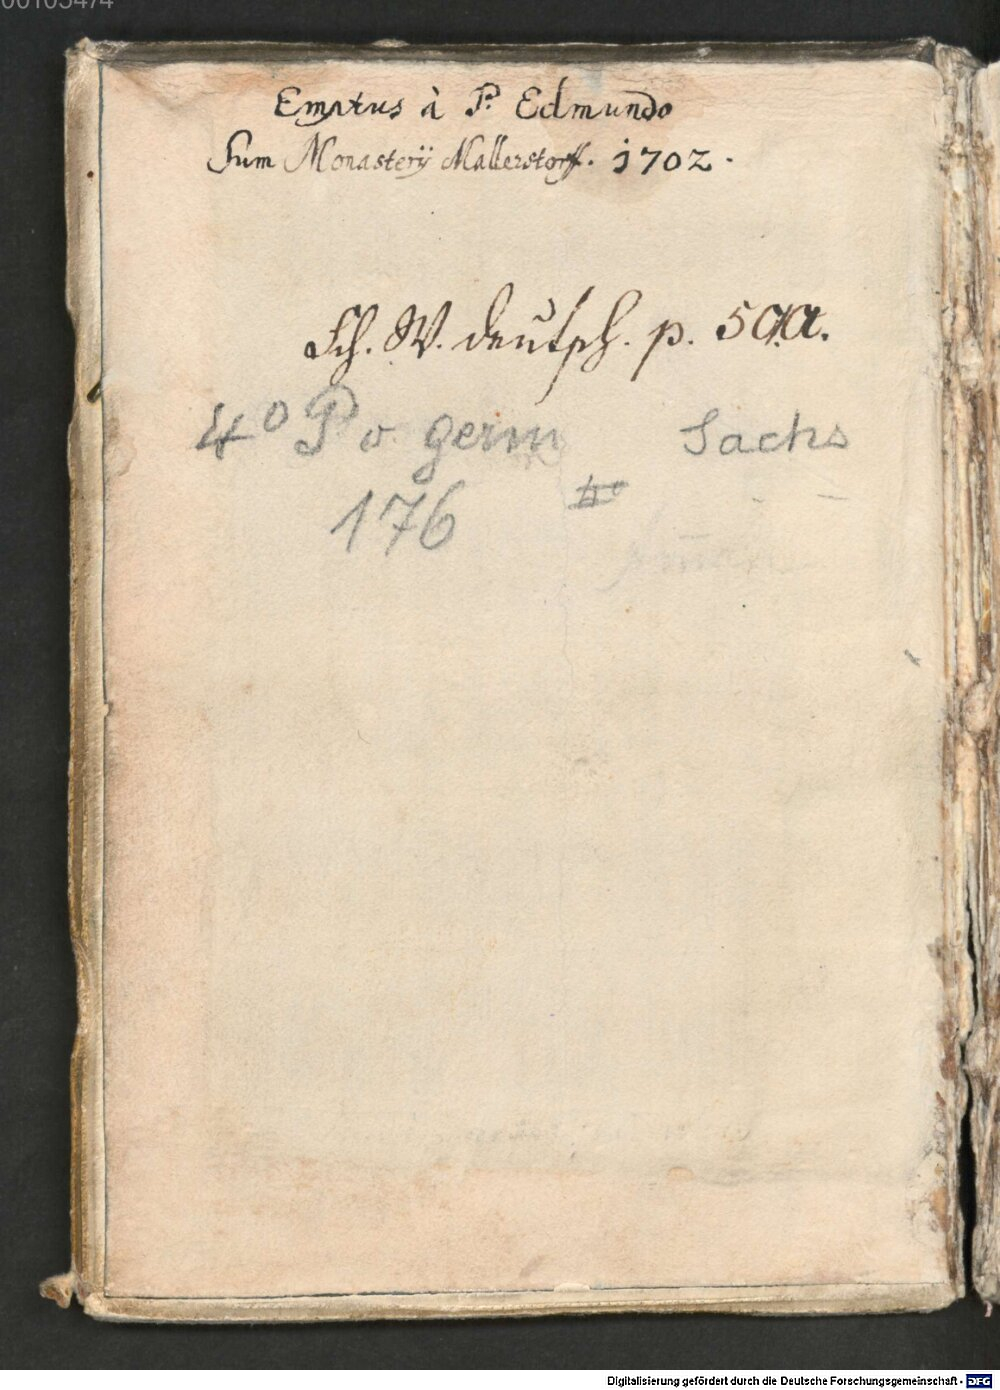 00105474
Emptus à P. Edmundo
Sum Monasterÿ Mallerstorff. 1702.
Sch. W. deutsch. p. 50
4° P o germ Sachs
176 4°
Digitalisierung gefördert durch die Deutsche Forschungsgemeinschaft - DFG